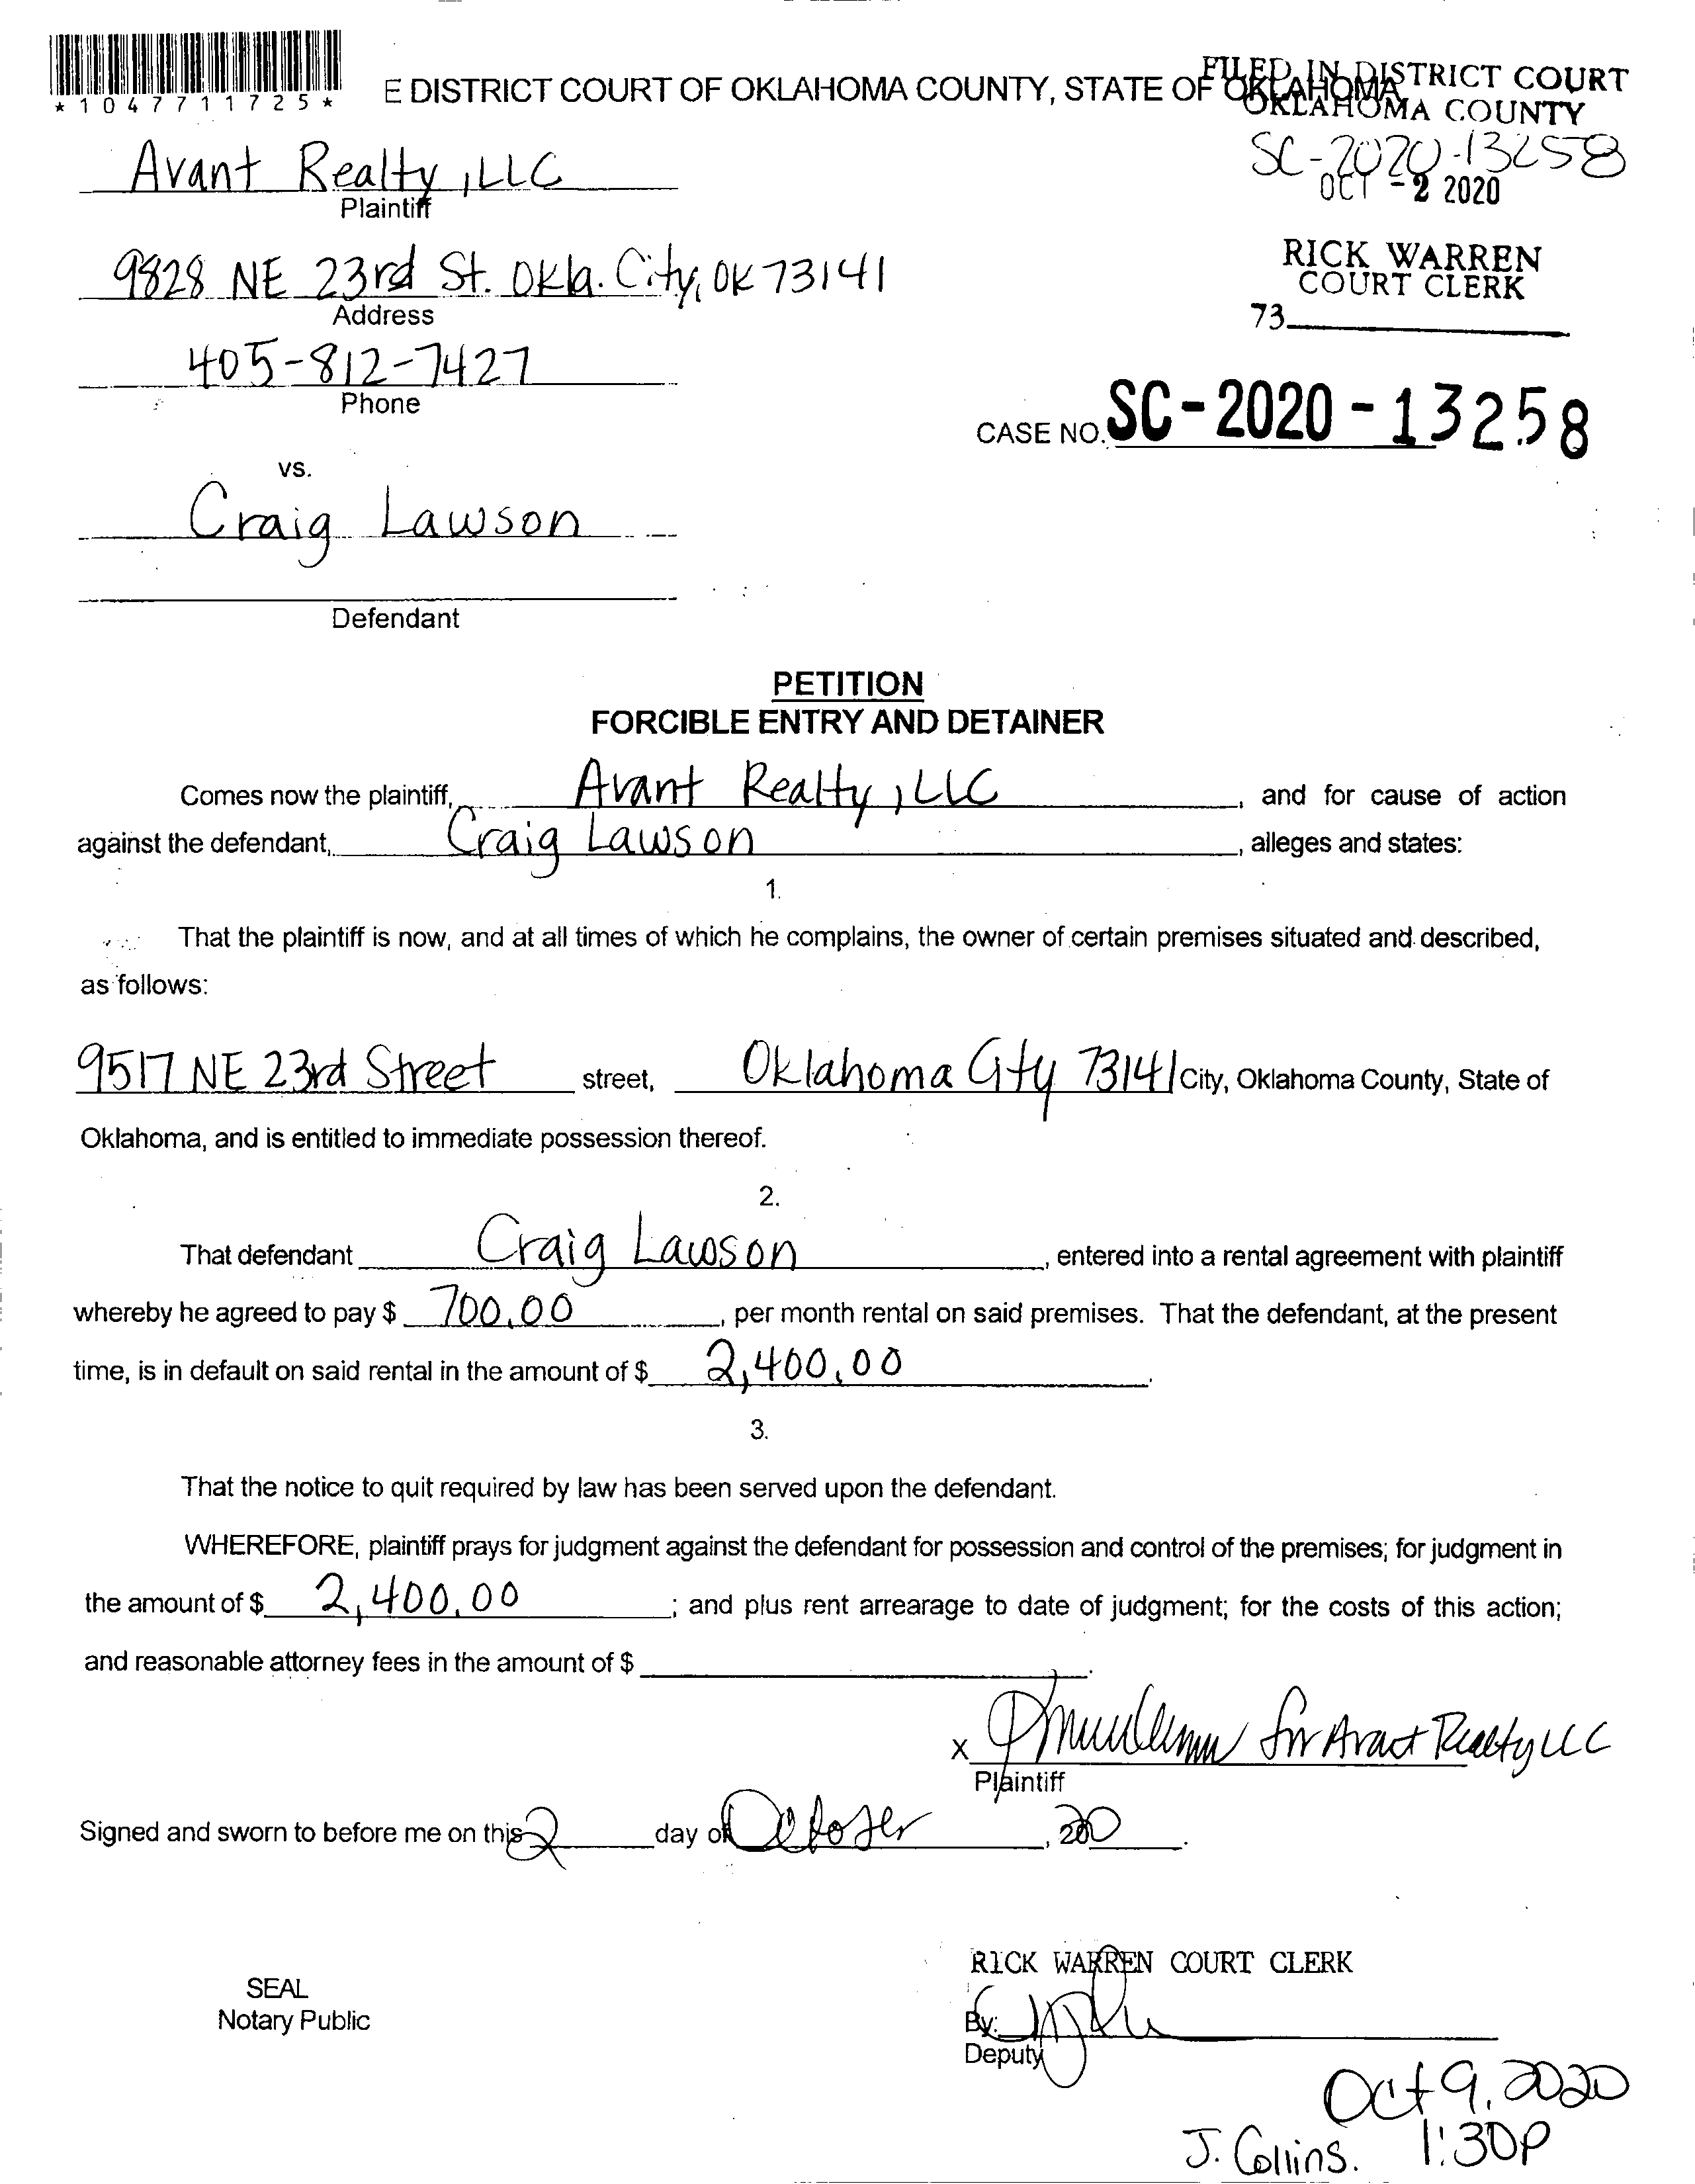 *1047711725*
E DISTRICT COURT OF OKLAHOMA COUNTY, STATE OF OKLAHOMA
FILED IN DISTRICT COURT
OKLAHOMA COUNTY
SC-2020-13258
OCT -2 2020
RICK WARREN
COURT CLERK
73
Avant Realty, LLC
Plaintiff
9828 NE 23rd St. Okla. City, OK 73141
Address
405-812-7427
Phone
CASE NO. SC-2020-13258
vs.
Craig Lawson
Defendant
PETITION
FORCIBLE ENTRY AND DETAINER
Comes now the plaintiff, Avant Realty, LLC, and for cause of action
against the defendant, Craig Lawson, alleges and states:
1.
That the plaintiff is now, and at all times of which he complains, the owner of certain premises situated and described,
as follows:
9517 NE 23rd Street street, Oklahoma City 73141 City, Oklahoma County, State of
Oklahoma, and is entitled to immediate possession thereof.
2.
That defendant Craig Lawson, entered into a rental agreement with plaintiff
whereby he agreed to pay $ 700.00, per month rental on said premises. That the defendant, at the present
time, is in default on said rental in the amount of $ 2,400.00.
3.
That the notice to quit required by law has been served upon the defendant.
WHEREFORE, plaintiff prays for judgment against the defendant for possession and control of the premises; for judgment in
the amount of $ 2,400.00; and plus rent arrearage to date of judgment; for the costs of this action;
and reasonable attorney fees in the amount of $.
x for Avant Realty LLC
Plaintiff
Signed and sworn to before me on this 2 day of October, 2020.
RICK WARREN COURT CLERK
SEAL
Notary Public
By:
Deputy
Oct 9, 2020
J. Collins. 1:30p